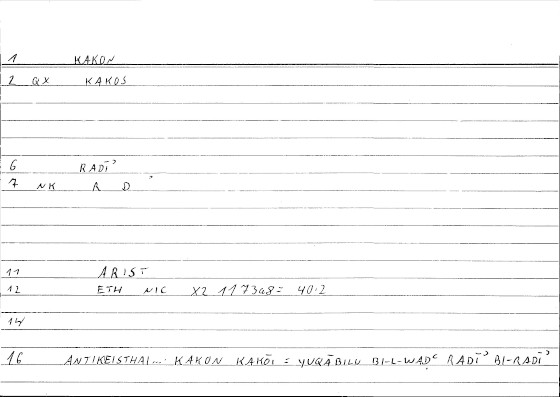 1 KAKON
2 QX KAKOS
6 RADĪʾ
7 NK R D ʾ
11 ARIST
12 ETH NIC X2 1173a8 = 40.2
14
16 ANTIKEISTHAI... KAKON KAKŌI = YUQĀBILU BI-L-WAḌʿ RADĪʾ BI-RADĪʾ